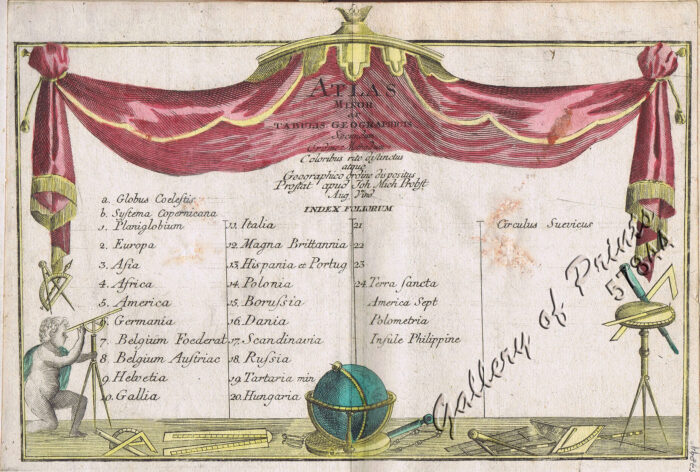 ATLAS
MINOR
TABULIS GEOGRAPHICIS
Coloribus rite distinctus
atque
Geographico ordine dispositus
Prostat apud Joh. Mich Probst
Aug. Vind.
INDEX FOLIORUM
a. Globus Coelestis
b. Systema Copernicana
1. Planiglobium
2. Europa
3. Asia
4. Africa
5. America
6. Germania
7. Belgium Foederat.
8. Belgium Austriac
9. Helvetia
10. Gallia
11. Italia
12. Magna Brittannia
13. Hispania et Portug
14. Polonia
15. Borussia
16. Dania
17. Scandinavia
18. Russia
19. Tartaria min
20. Hungaria
21
22
23
24. Terra sancta
America Sept
Polometria
Insule Philippine
Circulus Suevicus
Gallery of Prints